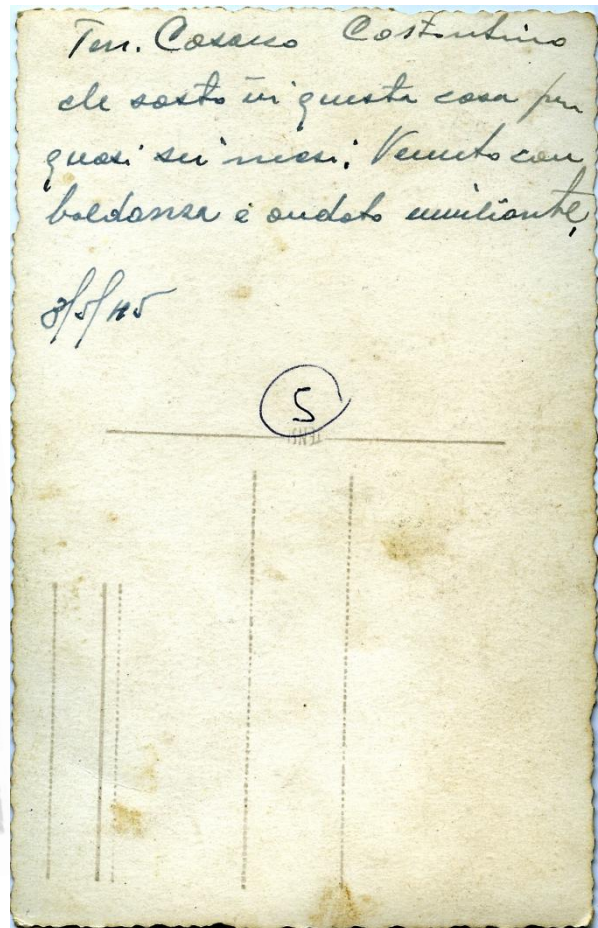 Ten. Casano Costantino
che sosto in questa casa per
quasi sei mesi; Venuto con
baldanza e andato umiliante,
8/5/45
5